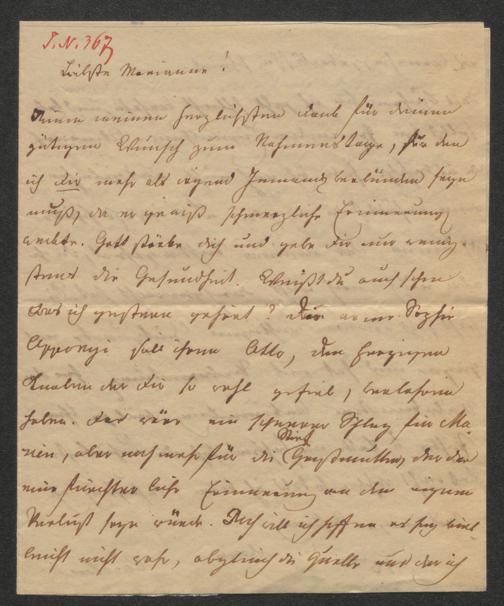 I.N. 367
Liebste Marianne!
meinen herzlichsten Dank für deinen
gütigen Wunsch zum Nahmenstage, für den
ich dir mehr als irgend Jemand verbunden seyn
muß, da er gewiß schmerzliche Erinnerung
weckte. Gott stärke dich und gebe dir nur wenig-
stens die Gesundheit. Weißt du auch schon
was ich gestern gehört? Die arme Sophie
Apponyi soll ihren Otto, den herzigen
Knaben der dir so wohl gefiel, verlohren
haben. Das wäre ein schwerer Schlag für Ma-
rien, aber noch mehr für die Stief Großmutter, der das
eine fürchterliche Erinnerung an den eigenen
Verlust seyn würde. Doch will ich hoffen es sey viel-
leicht nicht wahr, obgleich die Quelle aus der ich